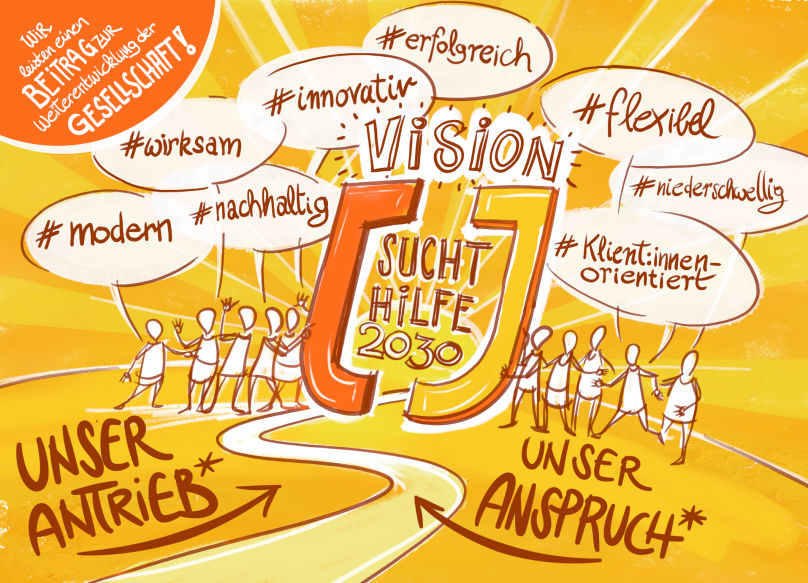 WIR
leisten einen
BEITRAG ZUR
Weiterentwicklung der
GESELLSCHAFT!
#erfolgreich
#innovativ
#wirksam
#nachhaltig
#modern
#flexibel
#niederschwellig
#Klient:innen-
orientiert
VISION
SUCHT
HILFE
2030
UNSER
ANTRIEB*
UNSER
ANSPRUCH*